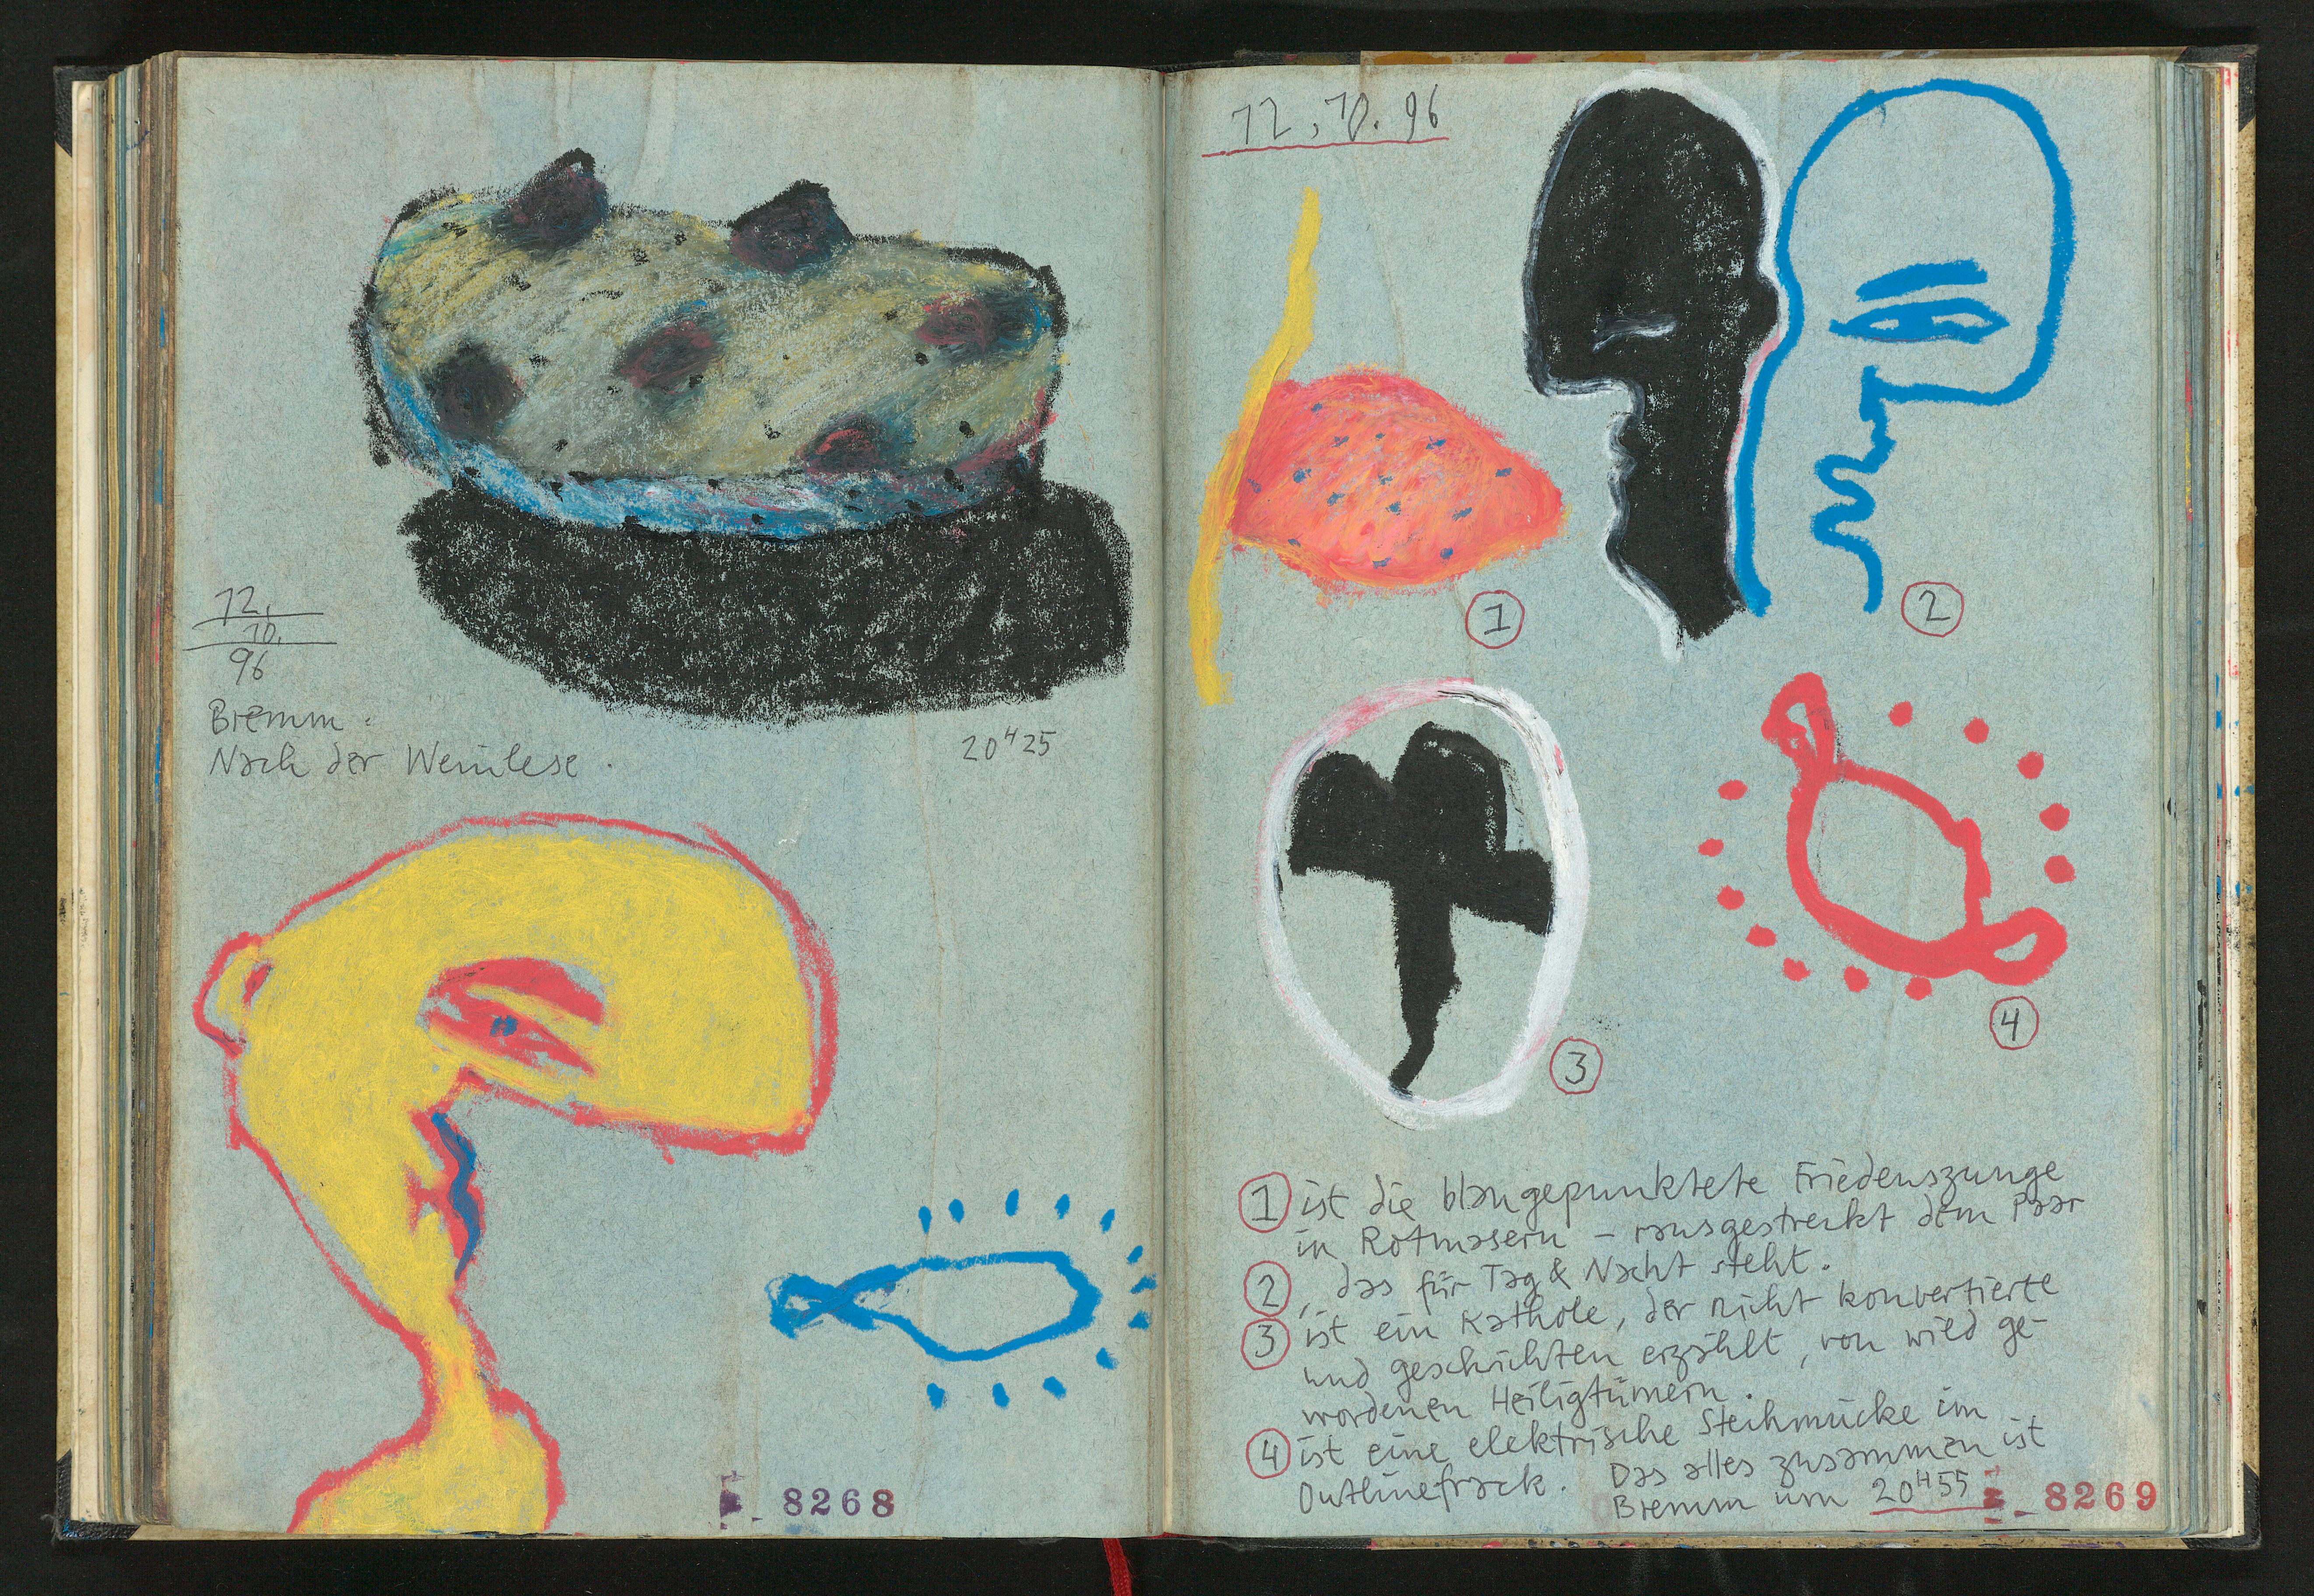 12.
10.
96
Bremm.
Nach der Weinlese.
20H25
8268
12.10.96
1
2
3
4
1 ist die blaugepunktete Friedenszunge
in Rotmasern – rausgestreckt dem Paar
2, das für Tag & Nacht steht.
3 ist ein Kathole, der nicht konvertierte
und geschichten erzählt, von wild ge-
wordenen Heiligtümern.
4 ist eine elektrische Stechmücke im
Outlinefrack. Das alles zusammen ist
Bremm um 20H55
8269